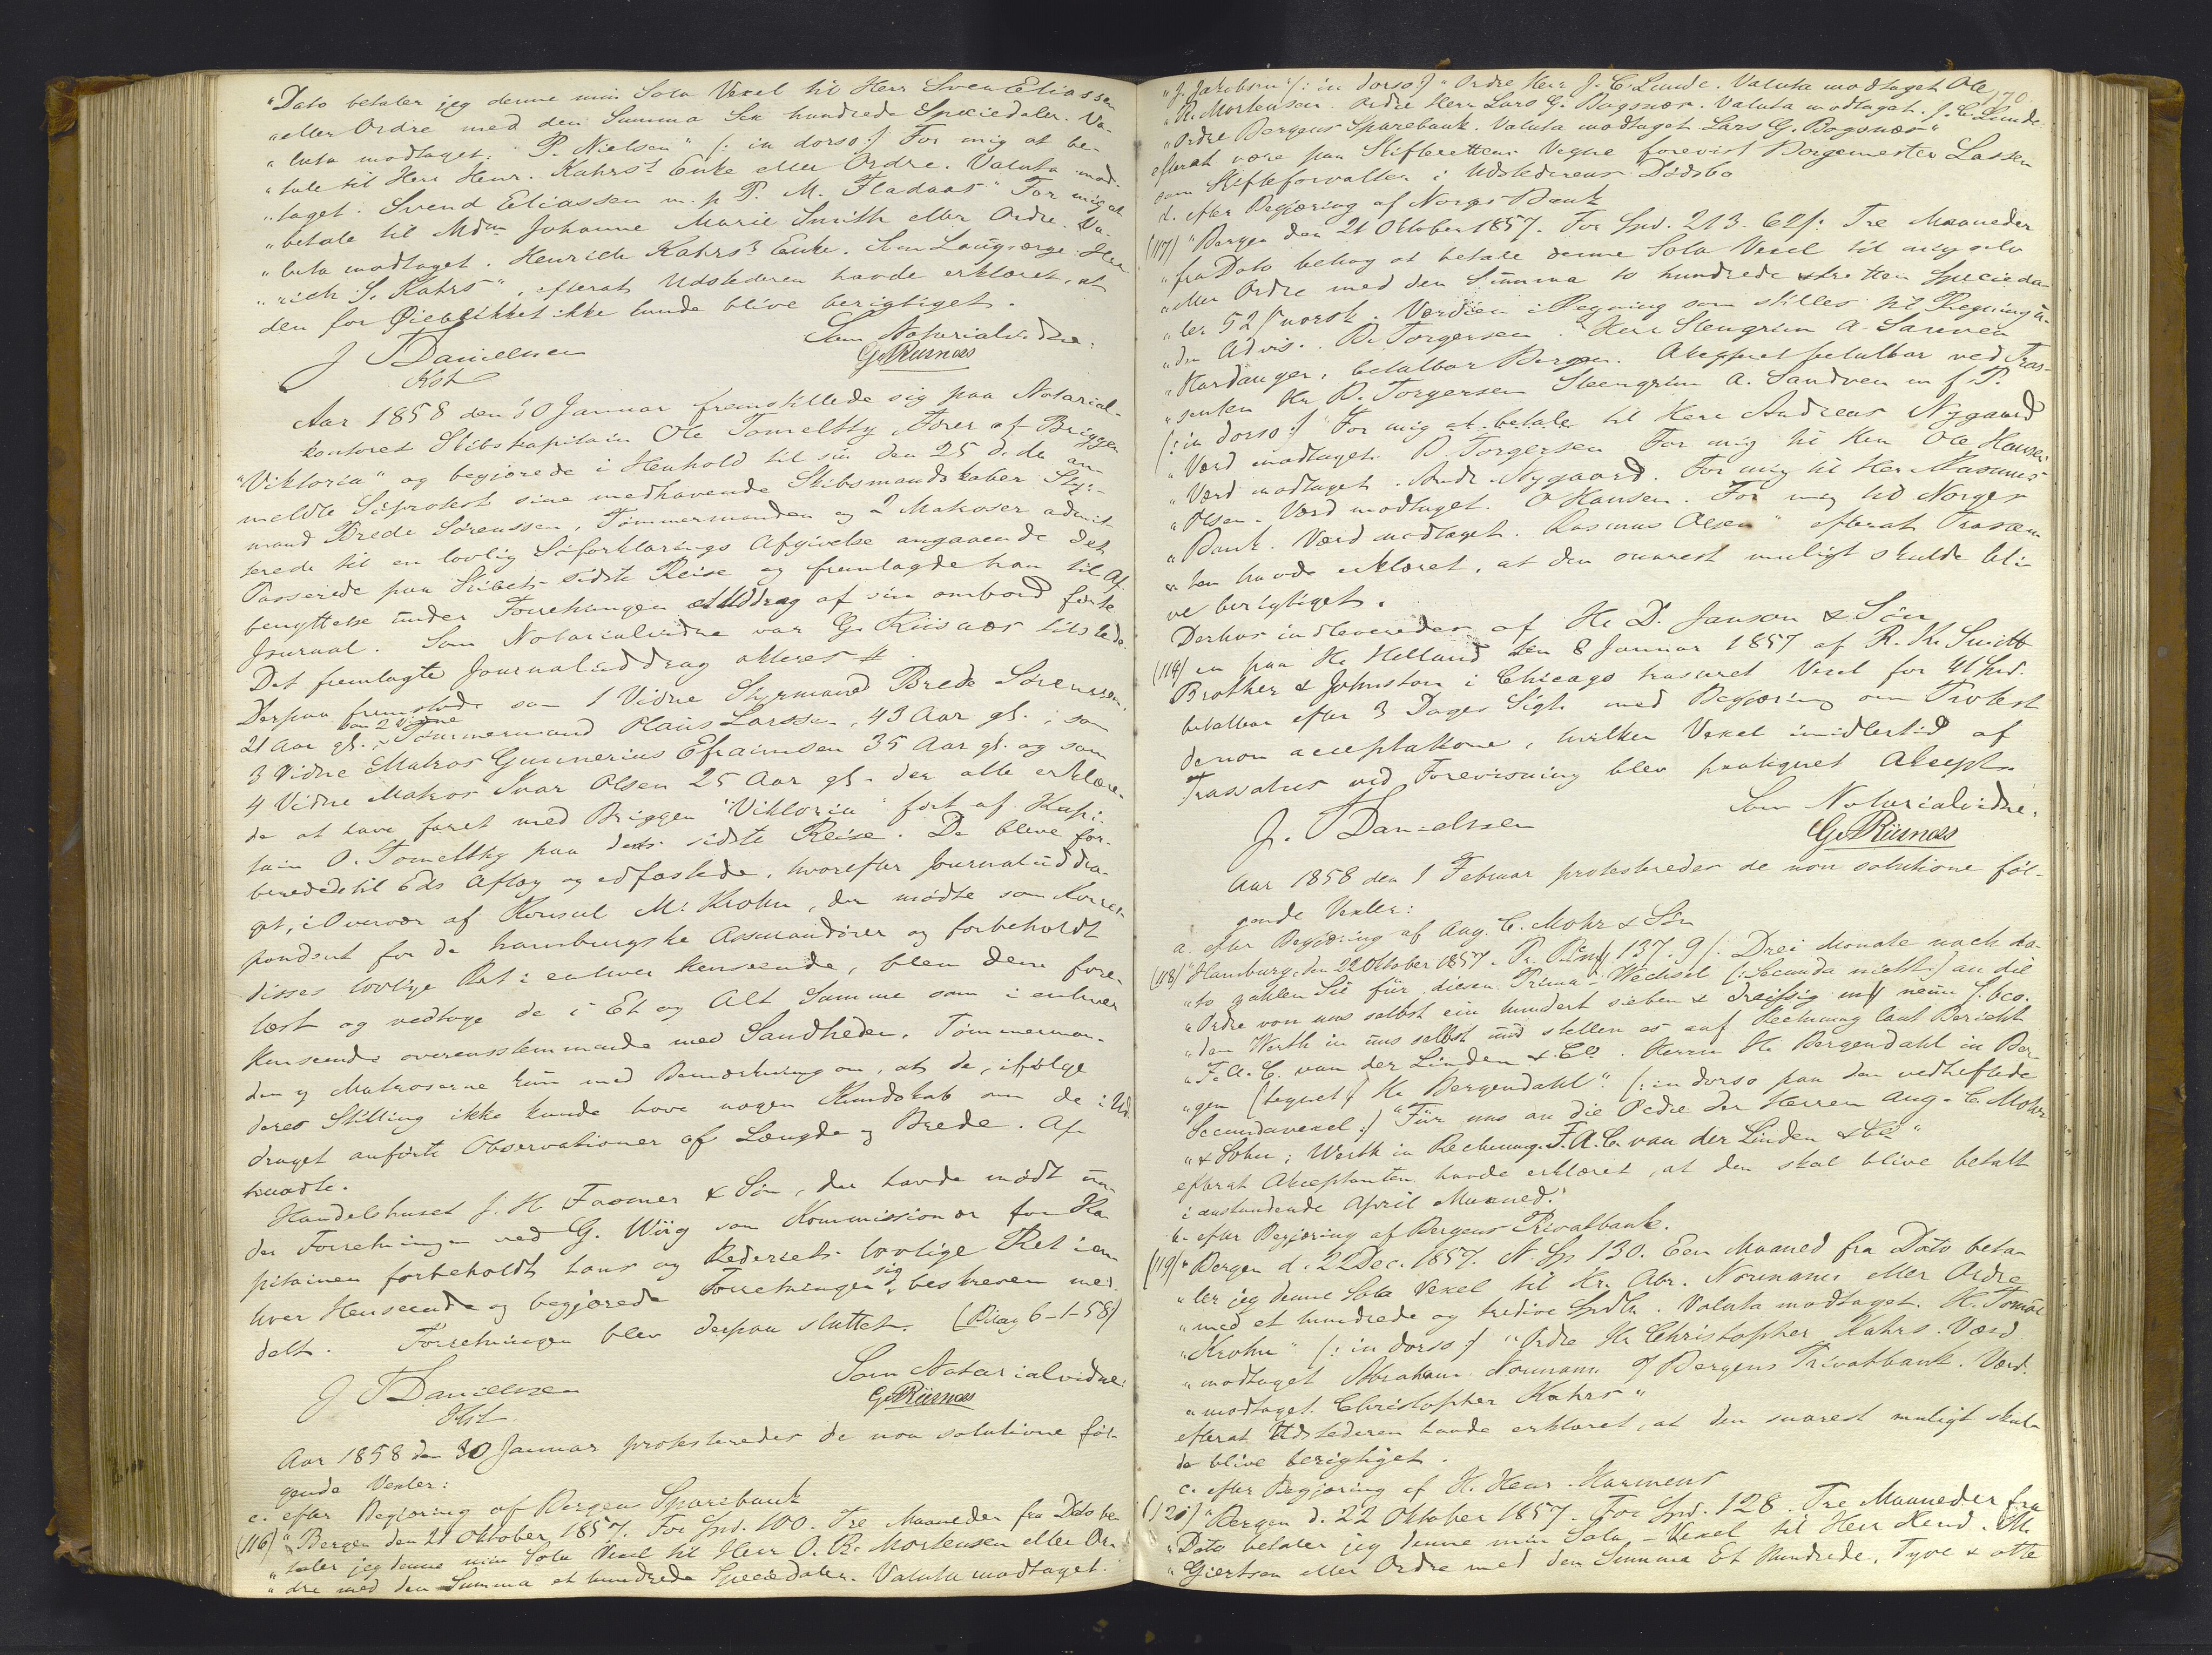 "Dato betaler jeg denne min Sola Vexel til Herr Sven Eliassen
"eller Ordre med den Summa Sex hundrede Speciedaler. Va-
"luta modtaget. "P. Nielsen" (: in dorso :) For mig at be-
"tale til Herr Henr. Kahrs's Enke eller Ordre. Valuta mod-
"taget. Svend Eliassen m. p. P. M. Fladaas" For mig at
"betale til Mdm Johanne Marie Smith eller Ordre. Va-
"luta modtaget. Henrich Kahrs's Enke. Som Laugværge: Hen
"rich S. Kahrs", efterat Udstederen havde erklæret, at
den for Øieblikket ikke kunde blive berigtiget.
Som Notarialvidne:
J Danielssen
G. Riisnæs
Kst
Aar 1858 den 30 Januar fremstillede sig paa Notarial-
kontoret Skibskapitain Ole Tomeltty Fører af Briggen
"Viktoria" og begjærede i Henhold til sin den 25 d. de an
meldte Søprotest sine medhavende Skibsmandskaber Styr-
mand Brede Sørenssen, Tømmermanden og 2 Matroser admit
terede til en lovlig Søforklarings Afgivelse angaaende det
Passerede paa Skibets sidste Reise og fremlagde han til Af-
benyttelse under Forretningen et Uddrag af sin ombord førte
Journal. Som Notarialvidne var G. Riisnæs tilstede.
Det fremlagte Journaluddrag akteres #
Derpaa fremstode som 1 Vidne Styrmand Brede Sørenssen,
21 Aar gl., som 2 Vidne Tømmermand Klaus Larssen, 43 Aar gl., som
3 Vidne Matros Gunnerius Efraimsen 35 Aar gl. og som
4 Vidne Matros Ivar Olsen 25 Aar gl. der alle erklære-
de at have faret med Briggen "Viktoria" ført af Kapi-
tain O. Tomeltty paa dets sidste Reise. De bleve for-
beredede til Eds Aflæg og edfæstede, hvorefter Journaluddra-
get, i Overvær af Konsul M. Krohn, der mødte som Korres-
pondent for de hamburgske Assurandører og forbeholdt
disses lovlige Ret i enhver Henseende, blev dem fore-
læst og vedtoge de i Et og Alt Samme som i enhver
Henseende overensstemmende med Sandheden. Tømmerman-
den og Matroserne kun med Bemærkning om, at de, ifølge
deres Stilling ikke kunde have nogen Kundskab om de i Ud
draget anførte Observationer af Længde og Brede. Af-
traadte.
Handelshuset J. H. Fasmer & Søn, der havde mødt un-
der Forretningen ved G. Wiig som Kommissionær for Ka
pitainen forbeholdt hans og Rederiets lovlige Ret i en
hver Henseende og begjærede Forretningen sig beskreven med-
delt. Forretningen blev derpaa sluttet. (Bilag 6-1-58)
Som Notarialvidne:
J Danielssen
G. Riisnæs
Kst
Aar 1858 den 30 Januar protesteredes de non solutione føl-
gende Vexler:
c. efter Begjæring af Bergens Sparebank
(116) "Bergen den 21 Oktober 1857. For Spd. 100. Tre Maaneder fra Dato be-
"taler jeg denne min Sola Vexel til Herr O. R. Mortensen eller Or-
"dre med den Summa et hundrede Speciedaler. Valuta modtaget.
170.
"J. Jakobsen" (: in dorso :) "Ordre Herr J. C. Lunde. Valuta modtaget Ole
"R. Mortensen. Ordre Herr Lars G. Bagsnæs. Valuta modtaget. J. C. Lunde
"Ordre Bergens Sparebank. Valuta modtaget Lars G. Bagsnæs"
efterat være paa Skifterettens Vegne forevist Borgemester Lassen
som Skifteforvalter i Udstederens Dødsbo
d. efter Begjæring af Norges Bank
(117) "Bergen den 21 Oktober 1857. For Spd. 213. 52 ß: Tre Maaneder
"fra Dato behag at betale denne Sola Vexel til mig selv
"eller Ordre med den Summa to hundrede & tretten Specieda-
"ler 52 ß norsk. Værdien i Regning som stilles til Regning u-
"den Advis. B. Torgersen. "Herr Stengrim A. Sanven
"Hardanger, betalbar Bergen. Akcepteret betalbar ved Tras-
"senten Hr B. Torgersen Steengrim A. Sandven m f. P.
(: in dorso :) "For mig at betale til Herr Andreas Nygaard
"Værd modtaget. B. Torgersen For mig til Herr Ole Hansen
"Værd modtaget. Andr. Nygaard. For mig til Herr Rasmus
"Olsen. Værd modtaget. O Hansen. For mig til Norges
"Bank. Værd modtaget. Rasmus Olsen" efterat Trassen-
ten havde erklæret, at den snarest muligt skulde bli-
ve berigtiget.
Derhos indleveredes af Hr D. Janson & Søn
(114) en paa Hr Helland den 8 Januar 1857 af R. K. Swift
Brother & Johnston i Chicago trasseret Vexel for 41 Spd.
betalbar efter 3 Dages Sigt med Begjæring om Protest
de non acceptatione, hvilken Vexel imidlertid af
Trassatus ved Forevisning blev paategnet Akcept.
Som Notarialvidne.
J. Danielssen
G. Riisnæs
Aar 1858 den 1 Februar protesteredes de non solutione føl-
gende Vexler:
a. efter Begjæring af Aug. C. Mohr & Søn
(118) "Hamburg, den 22 Oktober 1857. Pr. 137. 9 ß. Drei Monate nach da-
"to zahlen Sie für diesen Prima-Wechsel (: Secunda nicht :) an die
"Ordre von uns selbst ein hundert sieben & dreissig neun ß. bco.
"den Werth in uns selbst und stellen es auf Rechnung laut Bericht
"F. A. C. van der Linden & Co. Herrn H. Bergendahl in Ber-
"gen (tegnet) H. Bergendahl". (: in dorso paa den vedheftede
Secundavexel :) "Für uns an die Ordre der Herren Aug. C. Mohr
"& Sohn; Werth in Rechnung. F. A. C. van der Linden & Co"
efterat Akceptanten havde erklæret, at den skal blive betalt
i anstundende April Maaned.
b. efter Begjæring af Bergens Privatbank.
(119) "Bergen d. 22 Dec. 1857. N. Sp 130. Een Maaned fra Dato beta-
"ler jeg denne Sola Vexel til Hr. Abr. Normann eller Ordre
"med et hundrede og tredive Spdlr. Valuta modtaget.
"Krohn" (: in dorso :) "Ordre Hr Christopher Kahrs. Værd
"modtaget Abraham Normann O/ Bergens Privatbank. Værd.
"modtaget. Christopher Kahrs"
efterat Udstederen havde erklæret, at den snarest muligt skul-
de blive berigtiget.
c. efter Begjæring af H. Henr. Harmens
(120) "Bergen d. 22 Oktober 1857. For Spd. 128. Tre Maaneder fra
"Dato betaler jeg denne min Sola-Vexel til Herr
"Giertsen eller Ordre med den Summa Et Hundrede, Tyve & otte